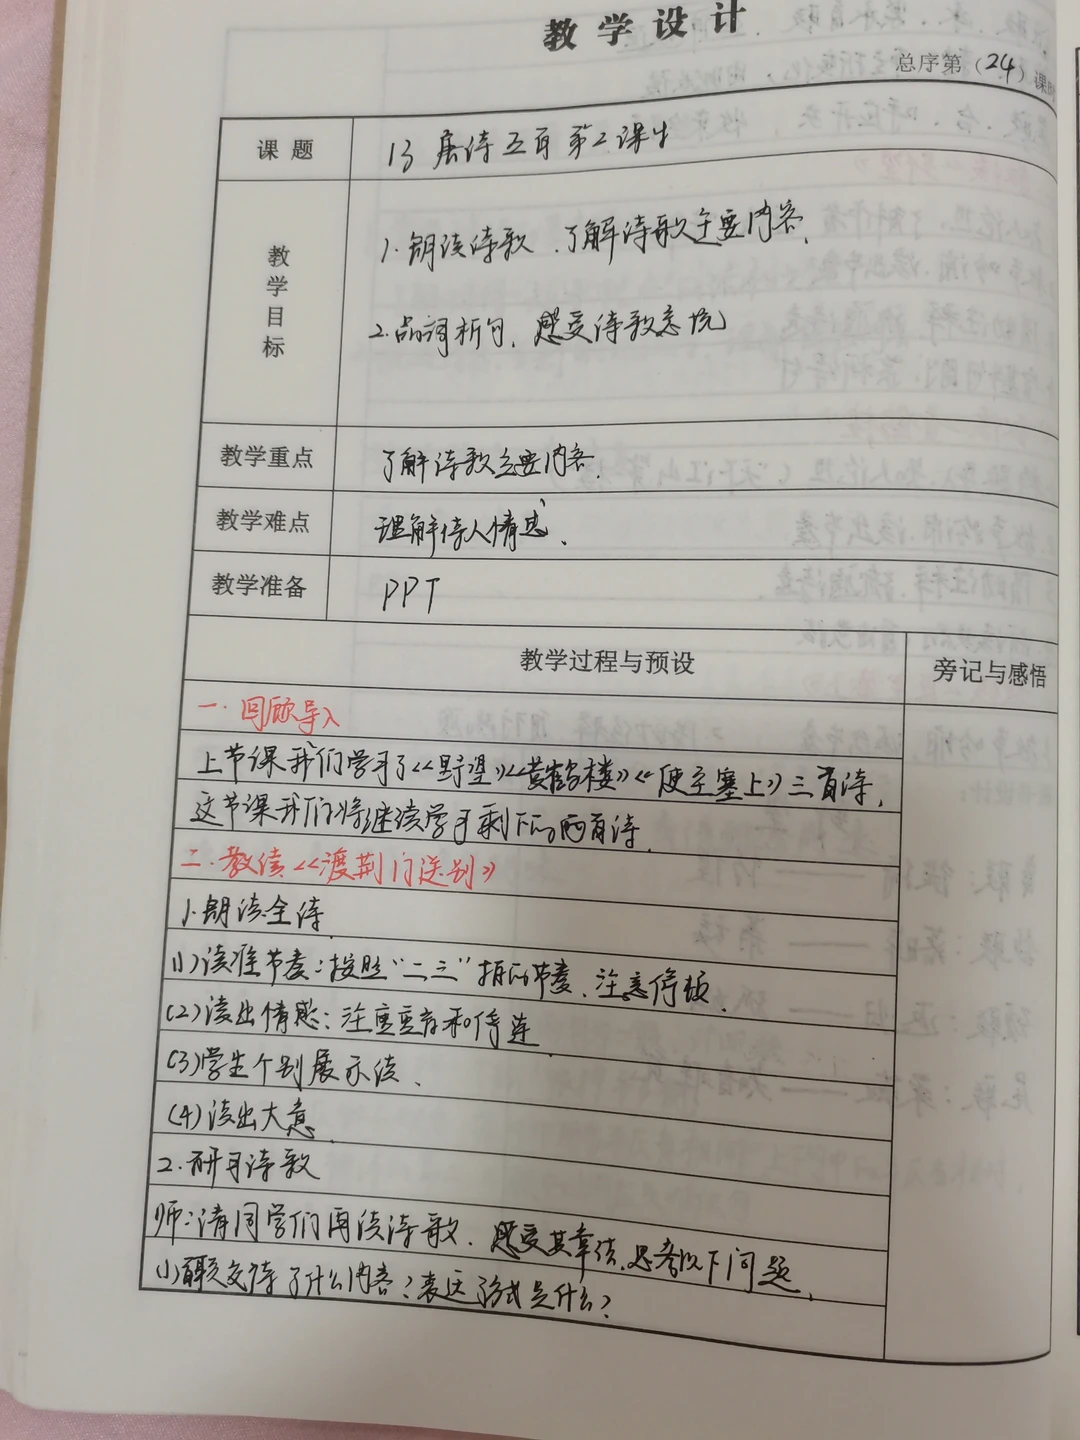 教学设计
总序第（24）课时
课题 13 唐诗五首 第2课时
教学目标 1. 朗读诗歌、了解诗歌主要内容、
2. 品词析句，感受诗歌意境
教学重点 了解诗歌主要内容、
教学难点 理解诗人情感、
教学准备 PPT
教学过程与预设 旁记与感悟
一. 回顾导入
上节课我们学习了《野望》《黄鹤楼》《使至塞上》三首诗，
这节课我们将继续学习剩下的两首诗、
二. 教读《渡荆门送别》
1. 朗读全诗、
(1)读准节奏：按照“二三”拍的节奏、注意停顿、
(2)读出情感：注意重音和停连、
(3)学生个别展示读、
(4)读出大意、
2. 研习诗歌
师：请同学们再读诗歌、感受其章法，思考以下问题、
(1) 联交待了什么内容？表达 式是什么？